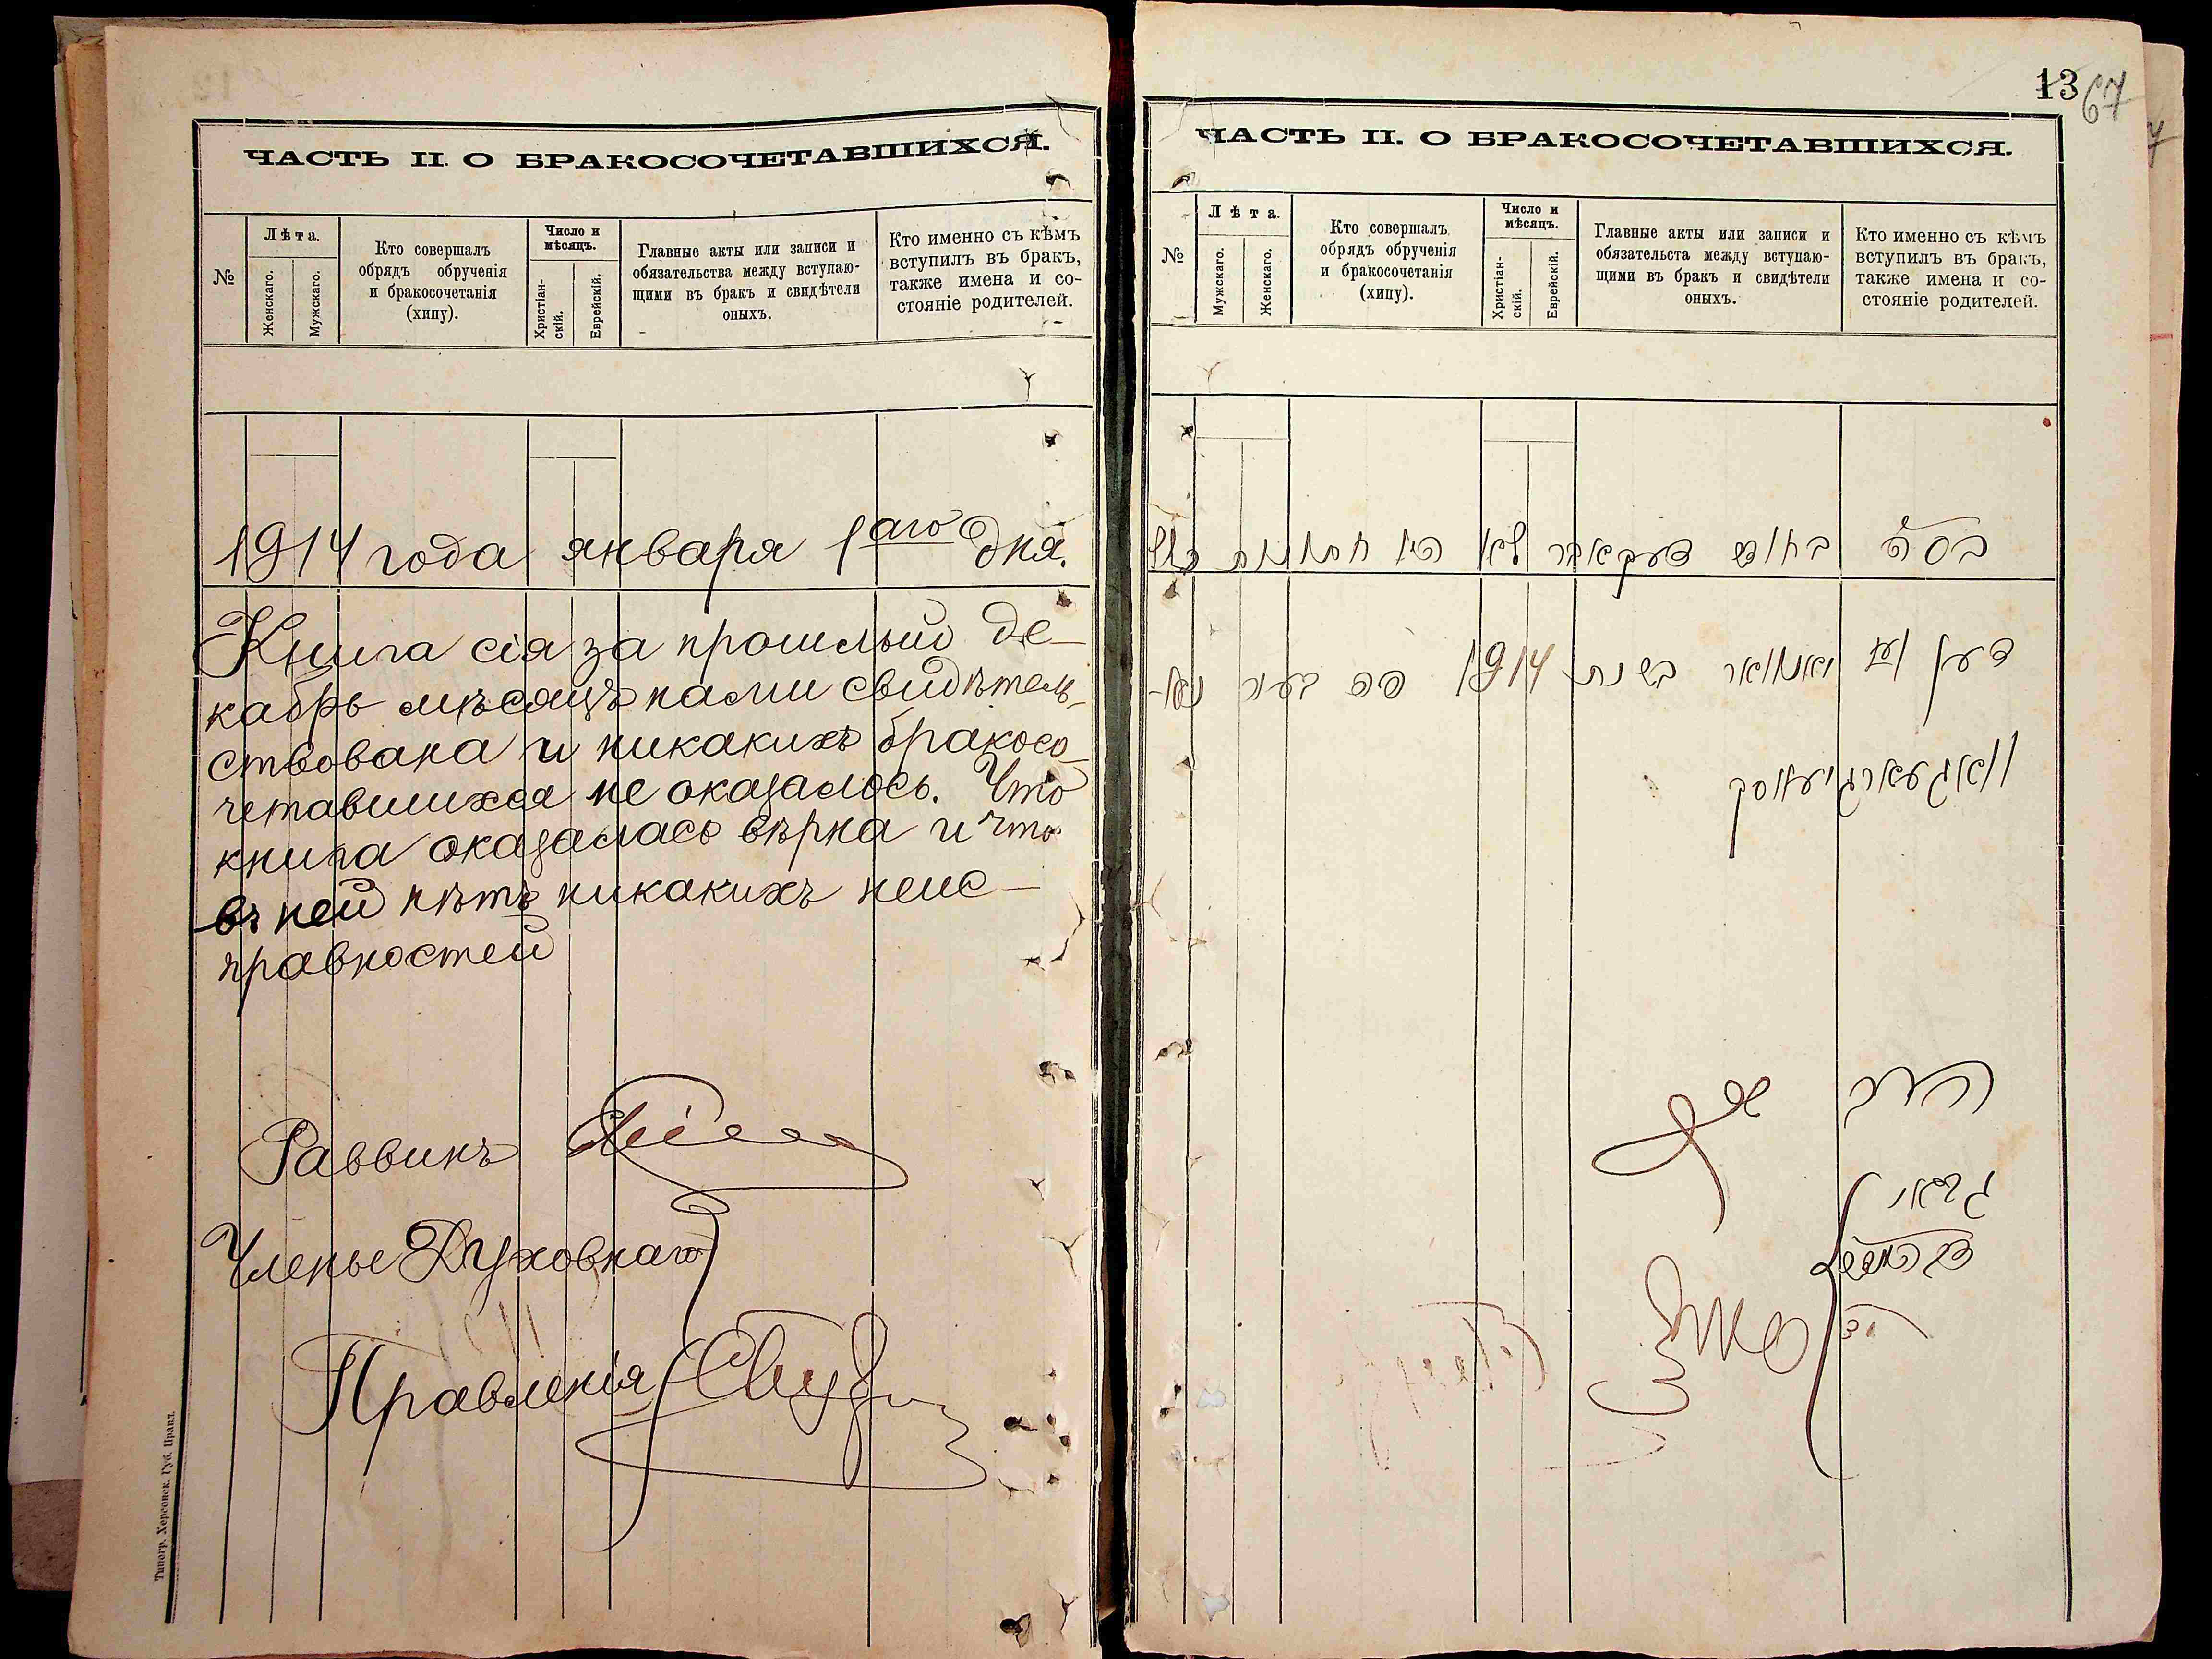 ЧАСТЬ II. О БРАКОСОЧЕТАВШИХСЯ.
№
Лѣта.
Женскаго.
Мужскаго.
Кто совершалъ
обрядъ обрученія
и бракосочетанія
(хипу).
Число и
мѣсяцъ.
Христіан-
скій.
Еврейскій.
Главные акты или записи и
обязательства между вступаю-
щими въ бракъ и свидѣтели
оныхъ.
Кто именно съ кѣмъ
вступилъ въ бракъ,
также имена и со-
стояніе родителей.
1914 года января 1аго дня.
Книга сія за прошлый де-
кабрь мѣсяцъ нами свидѣтель-
ствована и никакихъ бракосо-
четавшихся не оказалось. Что
книга оказалась вѣрна и что
въ ней нѣтъ никакихъ неис-
правностей
Раввинъ
Члены Духовнаго
Правленія
Типогр. Херсонск. Губ. Правл.
13
67
ЧАСТЬ II. О БРАКОСОЧЕТАВШИХСЯ.
№
Лѣта.
Мужскаго.
Женскаго.
Кто совершалъ
обрядъ обрученія
и бракосочетанія
(хипу).
Число и
мѣсяцъ.
Христіан-
скій.
Еврейскій.
Главные акты или записи и
обязательста между вступаю-
щими въ бракъ и свидѣтели
оныхъ.
Кто именно съ кѣмъ
вступилъ въ бракъ,
также имена и со-
стояніе родителей.
בחודש דעקאבר לא היו חתונות
דען יאנואר בשנת 1914 פה
הרב
גבאי